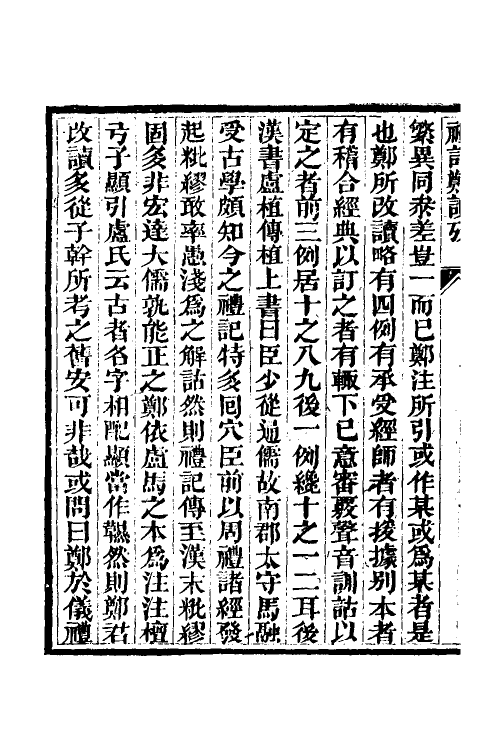 禮記鄭讀攷
繁異同叅差豈一而已鄭注所引或作某或爲某者是
也鄭所改讀略有四例有承受經師者有援據別本者
有稽合經典以訂之者有輙下已意審覈聲音訓詁以
定之者前三例居十之八九後一例纔十之一二耳後
漢書盧植傳植上書曰臣少從通儒故南郡太守馬融
受古學頗知今之禮記特多囘穴臣前以周禮諸經發
起粃繆敢率愚淺爲之解詁然則禮記傳至漢末粃繆
固多非宏達大儒孰能正之鄭依盧馬之本爲注注檀
弓子顯引盧氏云古者名字相配顯當作韅然則鄭君
改讀多從子幹所考之舊安可非哉或問曰鄭於儀禮